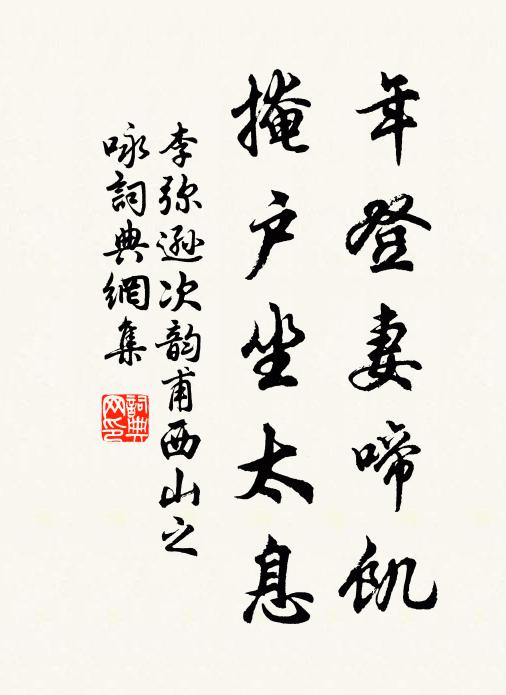 年登妻啼飢
掩户坐太息
李弥遜次韵甫西山之
咏詞典網集
詞典网印